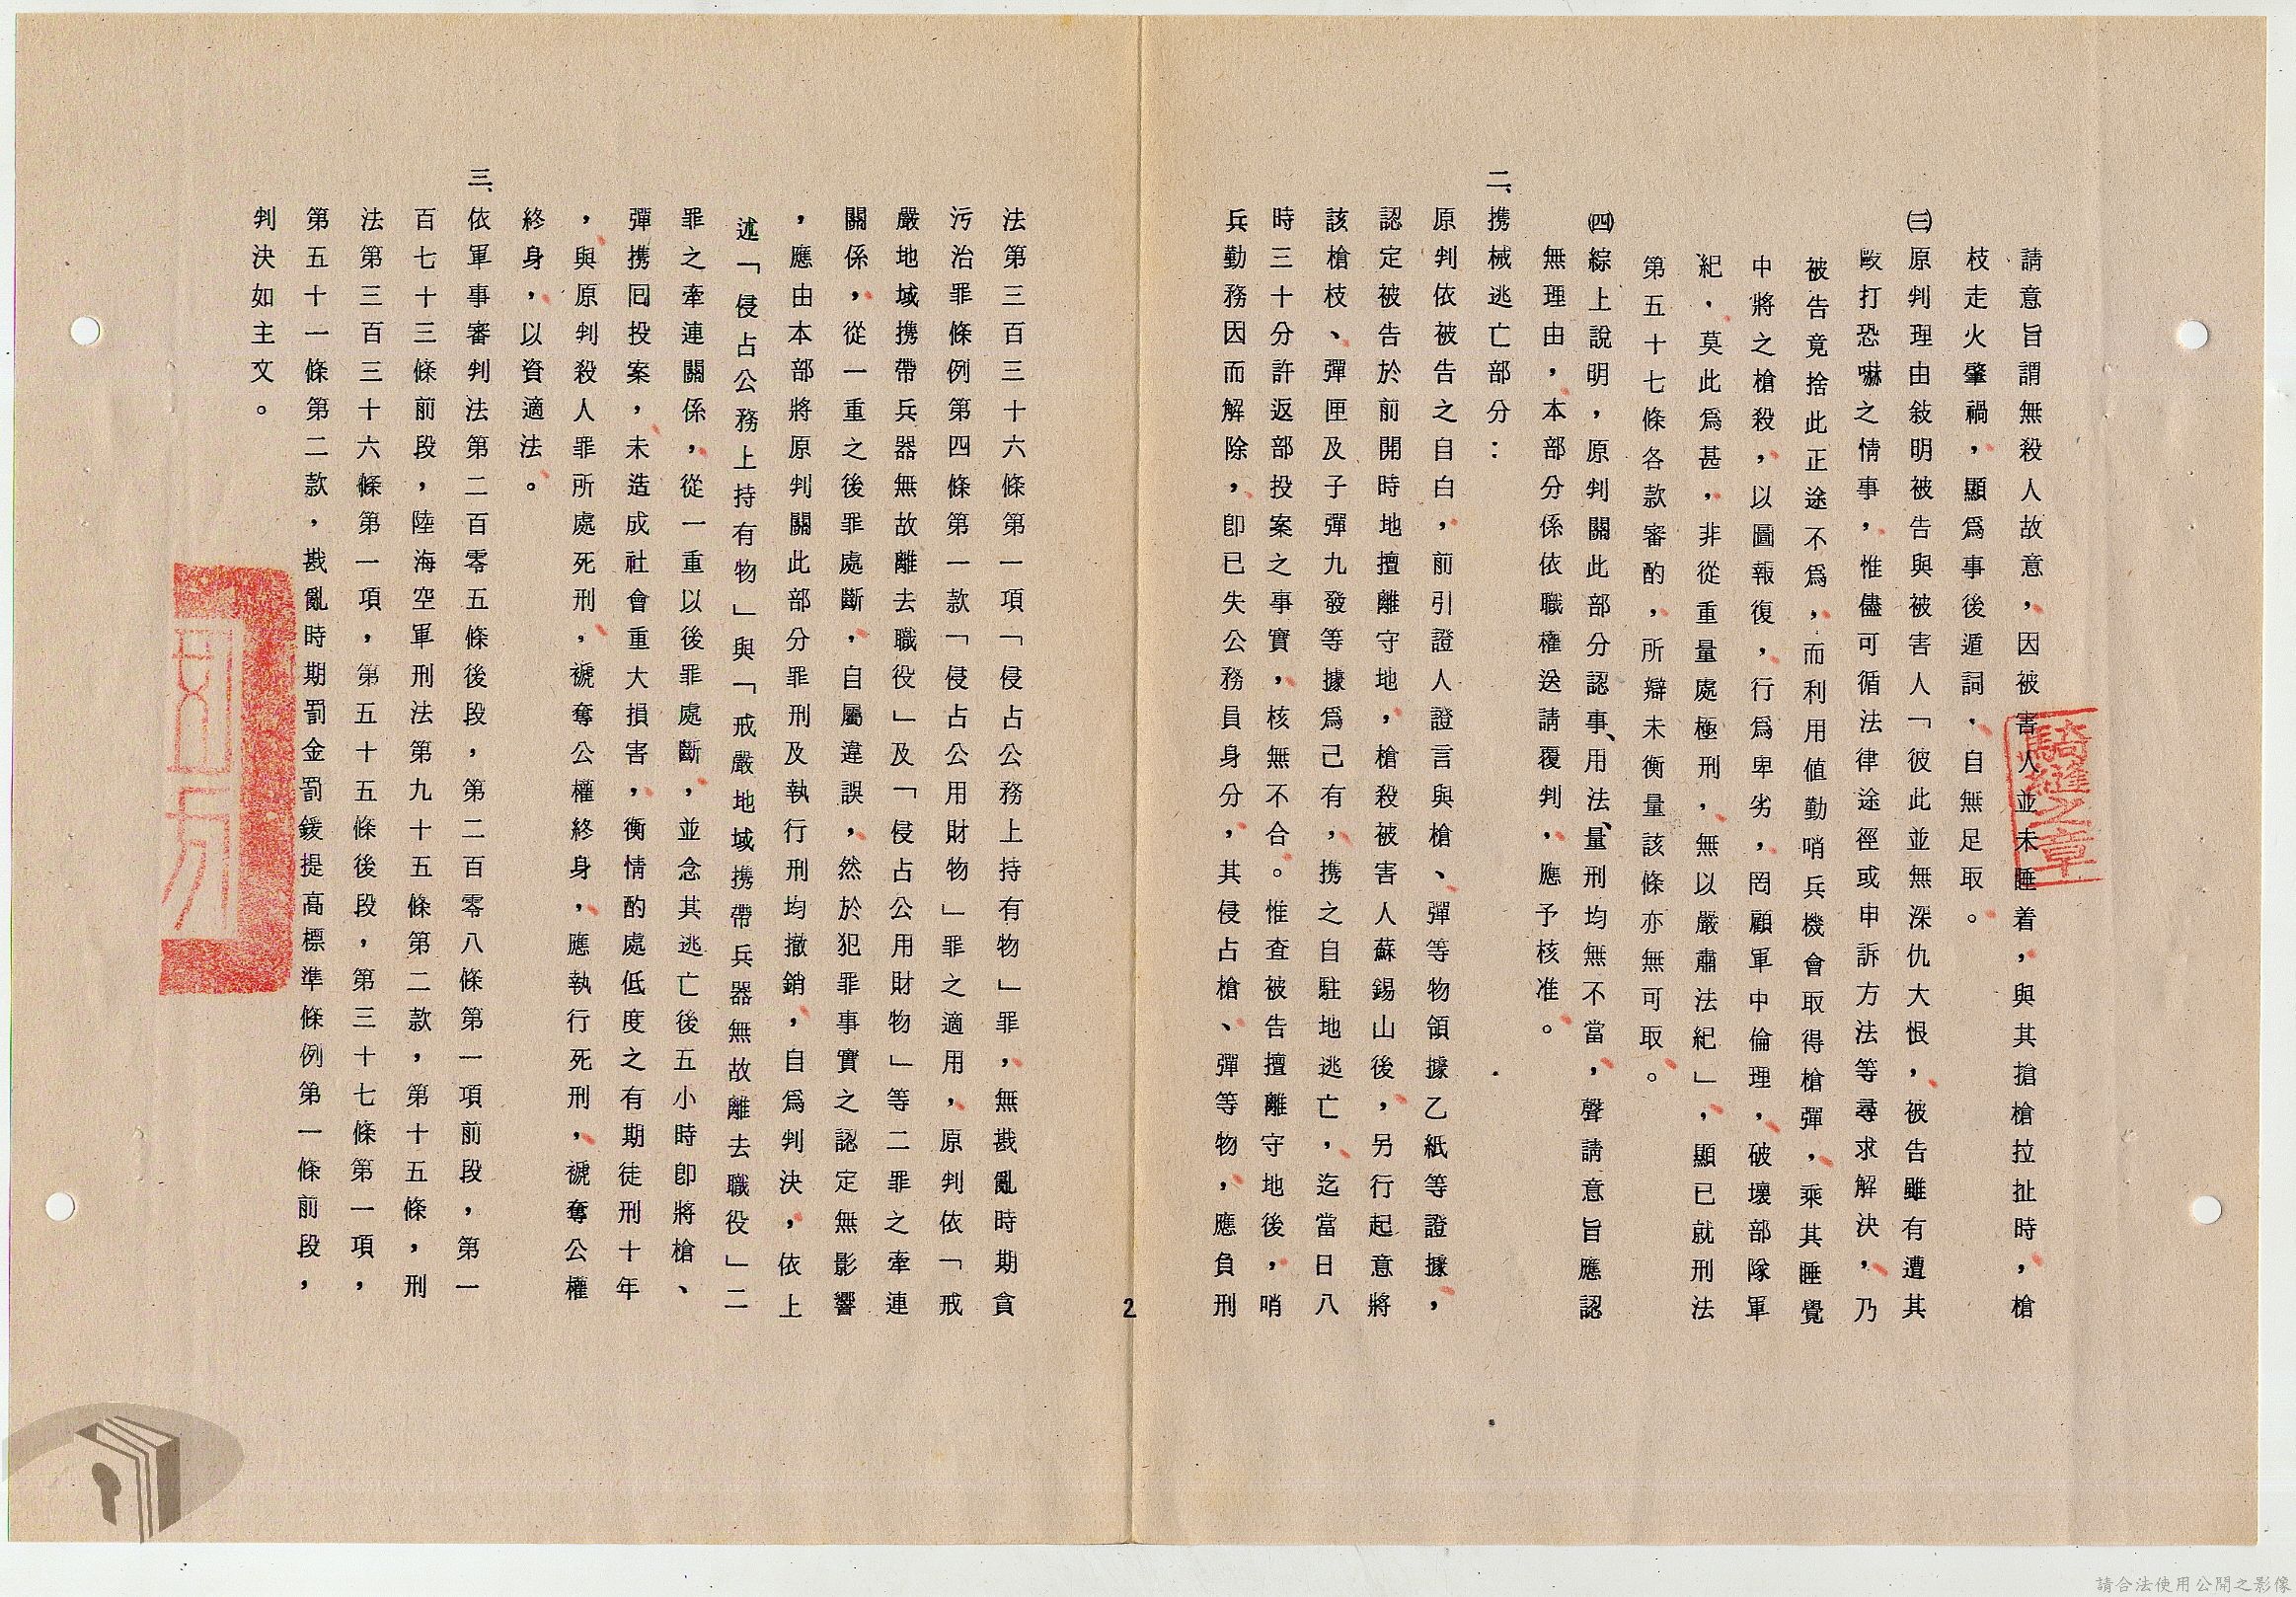 請意旨謂無殺人故意，因被害人並未睡着，與其搶槍拉扯時，槍
枝走火肇禍，顯爲事後遁詞，自無足取。
㈢原判理由敍明被告與被害人「彼此並無深仇大恨，被告雖有遭其
毆打恐嚇之情事，惟儘可循法律途徑或申訴方法等尋求解決，乃
被告竟捨此正途不爲，而利用值勤哨兵機會取得槍彈，乘其睡覺
中將之槍殺，以圖報復，行爲卑劣，罔顧軍中倫理，破壞部隊軍
紀，莫此爲甚，非從重量處極刑，無以嚴肅法紀」，顯已就刑法
第五十七條各款審酌，所辯未衡量該條亦無可取。
㈣綜上說明，原判關此部分認事、用法、量刑均無不當，聲請意旨應認
無理由，本部分係依職權送請覆判，應予核准。
二、携械逃亡部分：
原判依被告之自白，前引證人證言與槍、彈等物領據乙紙等證據，
認定被告於前開時地擅離守地，槍殺被害人蘇錫山後，另行起意將
該槍枝、彈匣及子彈九發等據爲己有，携之自駐地逃亡，迄當日八
時三十分許返部投案之事實，核無不合。惟查被告擅離守地後，哨
兵勤務因而解除，卽已失公務員身分，其侵占槍、彈等物，應負刑
2
法第三百三十六條第一項「侵占公務上持有物」罪，無戡亂時期貪
污治罪條例第四條第一款「侵占公用財物」罪之適用，原判依「戒
嚴地域携帶兵器無故離去職役」及「侵占公用財物」等二罪之牽連
關係，從一重之後罪處斷，自屬違誤，然於犯罪事實之認定無影響
，應由本部將原判關此部分罪刑及執行刑均撤銷，自爲判決，依上
述「侵占公務上持有物」與「戒嚴地域携帶兵器無故離去職役」二
罪之牽連關係，從一重以後罪處斷，並念其逃亡後五小時卽將槍、
彈携囘投案，未造成社會重大損害，衡情酌處低度之有期徒刑十年
，與原判殺人罪所處死刑，褫奪公權終身，應執行死刑，褫奪公權
終身，以資適法。
三、依軍事審判法第二百零五條後段，第二百零八條第一項前段，第一
百七十三條前段，陸海空軍刑法第九十五條第二款，第十五條，刑
法第三百三十六條第一項，第五十五條後段，第三十七條第一項，
第五十一條第二款，戡亂時期罰金罰鍰提高標準條例第一條前段，
判決如主文。
騎縫之章
請合法使用公開之影像